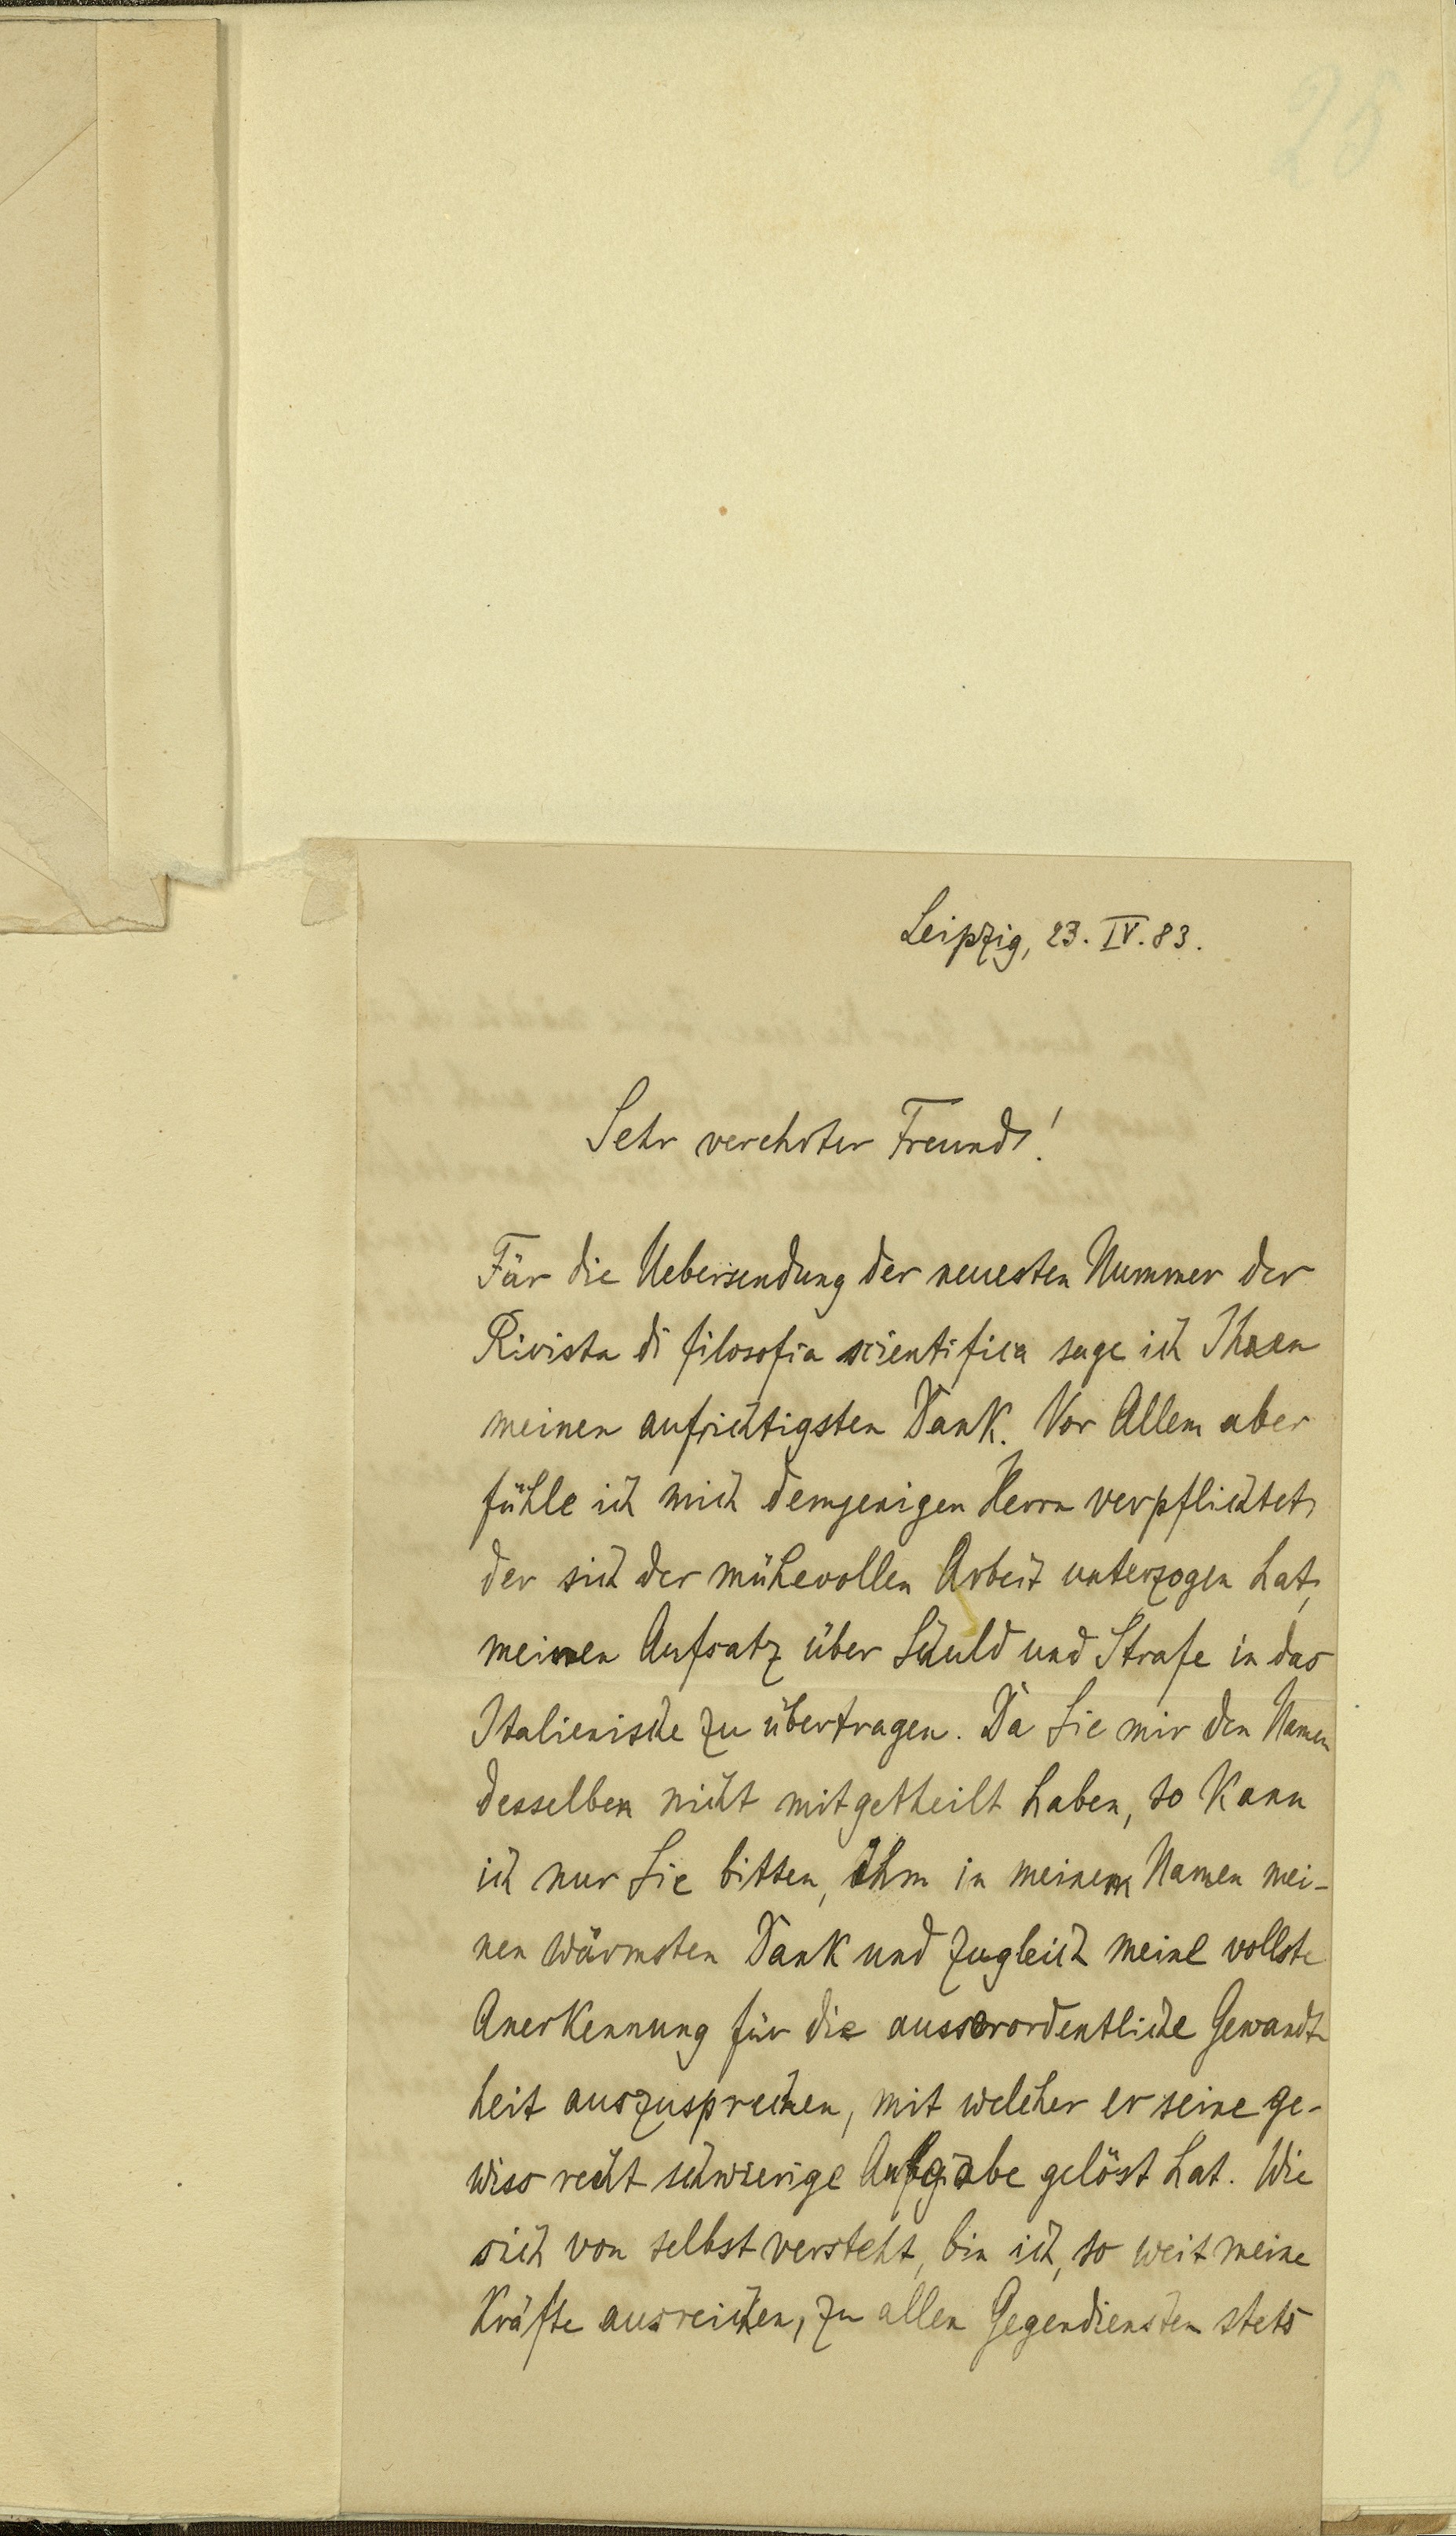 28
Leipzig, 23. IV. 83.
Sehr verehrter Freund!
Für die Uebersendung der neuesten Nummer der
Rivista di filosofia scientifica sage ich Ihnen
meinen aufrichtigsten Dank. Vor Allem aber
fühle ich mich demjenigen Herrn verpflichtet,
der sich der mühevollen Arbeit unterzogen hat,
meinen Aufsatz über Schuld und Strafe in das
Italienische zu übertragen. Da Sie mir den Namen
desselben nicht mitgetheilt haben, so kann
ich nur Sie bitten, ihm in meinem Namen mei-
nen wärmsten Dank und zugleich meine vollste
Anerkennung für die ausserordentliche Gewandt-
heit auszusprechen, mit welcher er seine ge-
wiss recht schwierige Aufgabe gelöst hat. Wie
sich von selbst versteht, bin ich, so weit meine
Kräfte ausreichen, zu allen Gegendiensten stets